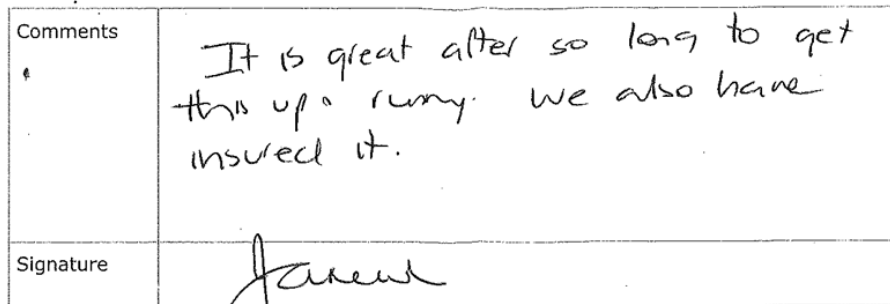 Comments
It is great after so long to get
this up & runny. We also have
insured it.
Signature